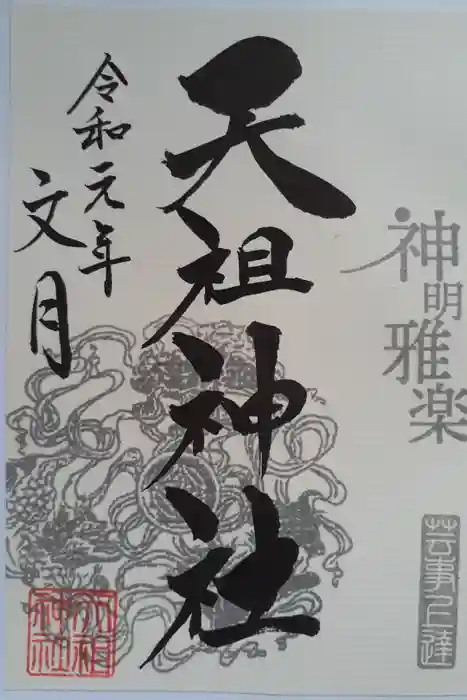 神明
雅楽
芸事上達
天祖神社
令和元年
文月
天祖
神社